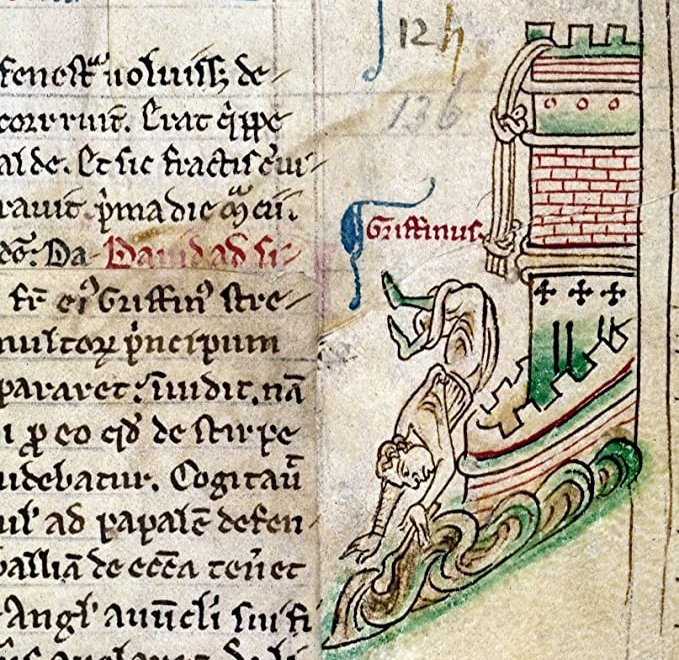 fenest voluiss; de-
corruit. Erat q̇ippe
alde. Et sic fractis cui-
ravit. p̃ma die
Da- David ad si-
fr̃ eiꝰ Griffinꝰ stre-
multoꝝ p̃ncipum
pararet: inuidit. nã
ꝓ eo qđ de stirpe
idebatur. Cogitau̅
ad papalẽ defen-
Walliã de ecc̃a ten̉et
Angł auũcli sui fi-
12h
136
Griffinus.